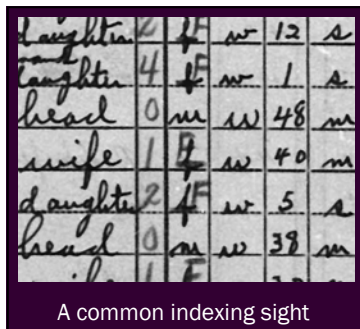 daughter 2 F w 12 s
grand
daughter 4 F w 1 s
head 0 m w 48 m
wife 1 F w 40 m
daughter 2 F w 5 s
head 0 m w 38 m
wife 1 F
A common indexing sight